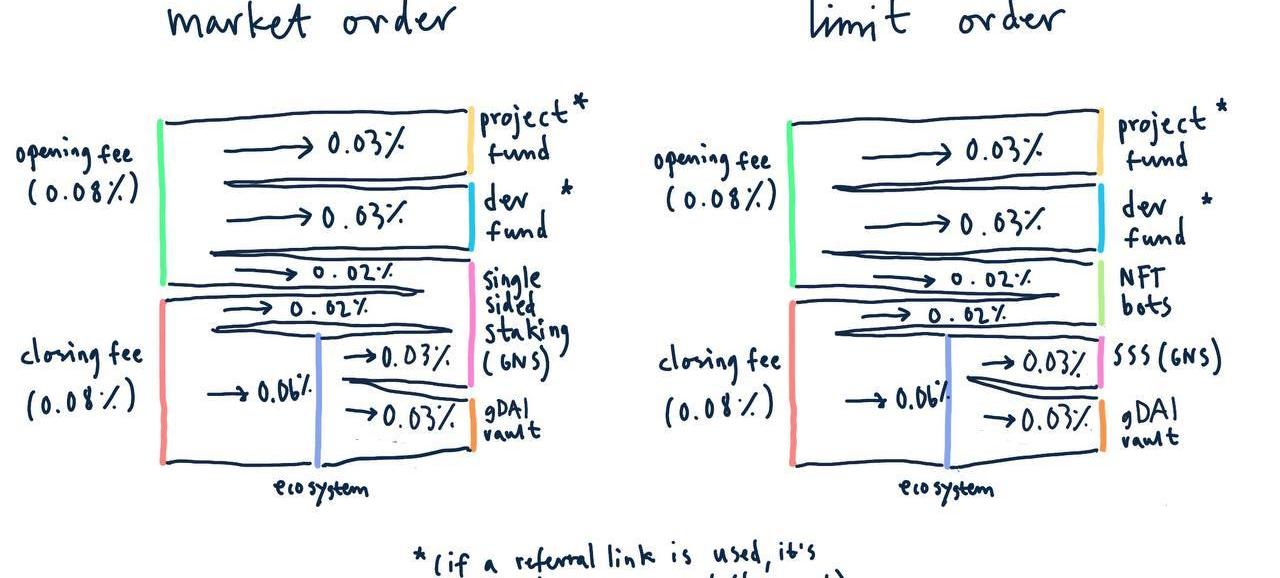 market order
opening fee
(0.08%)
→ 0.03%
project*
fund
→ 0.03%
dev *
fund
→ 0.02%
→ 0.02%
single
sided
staking
(GNS)
closing fee
(0.08%)
→ 0.06%
→ 0.03%
→ 0.03%
gDAI
vault
ecosystem
limit order
opening fee
(0.08%)
→ 0.03%
project*
fund
→ 0.03%
dev *
fund
→ 0.02%
→ 0.02%
NFT
bots
closing fee
(0.08%)
→ 0.06%
→ 0.03%
SSS (GNS)
→ 0.03%
gDAI
vault
ecosystem
*(if a referral link is used, it's